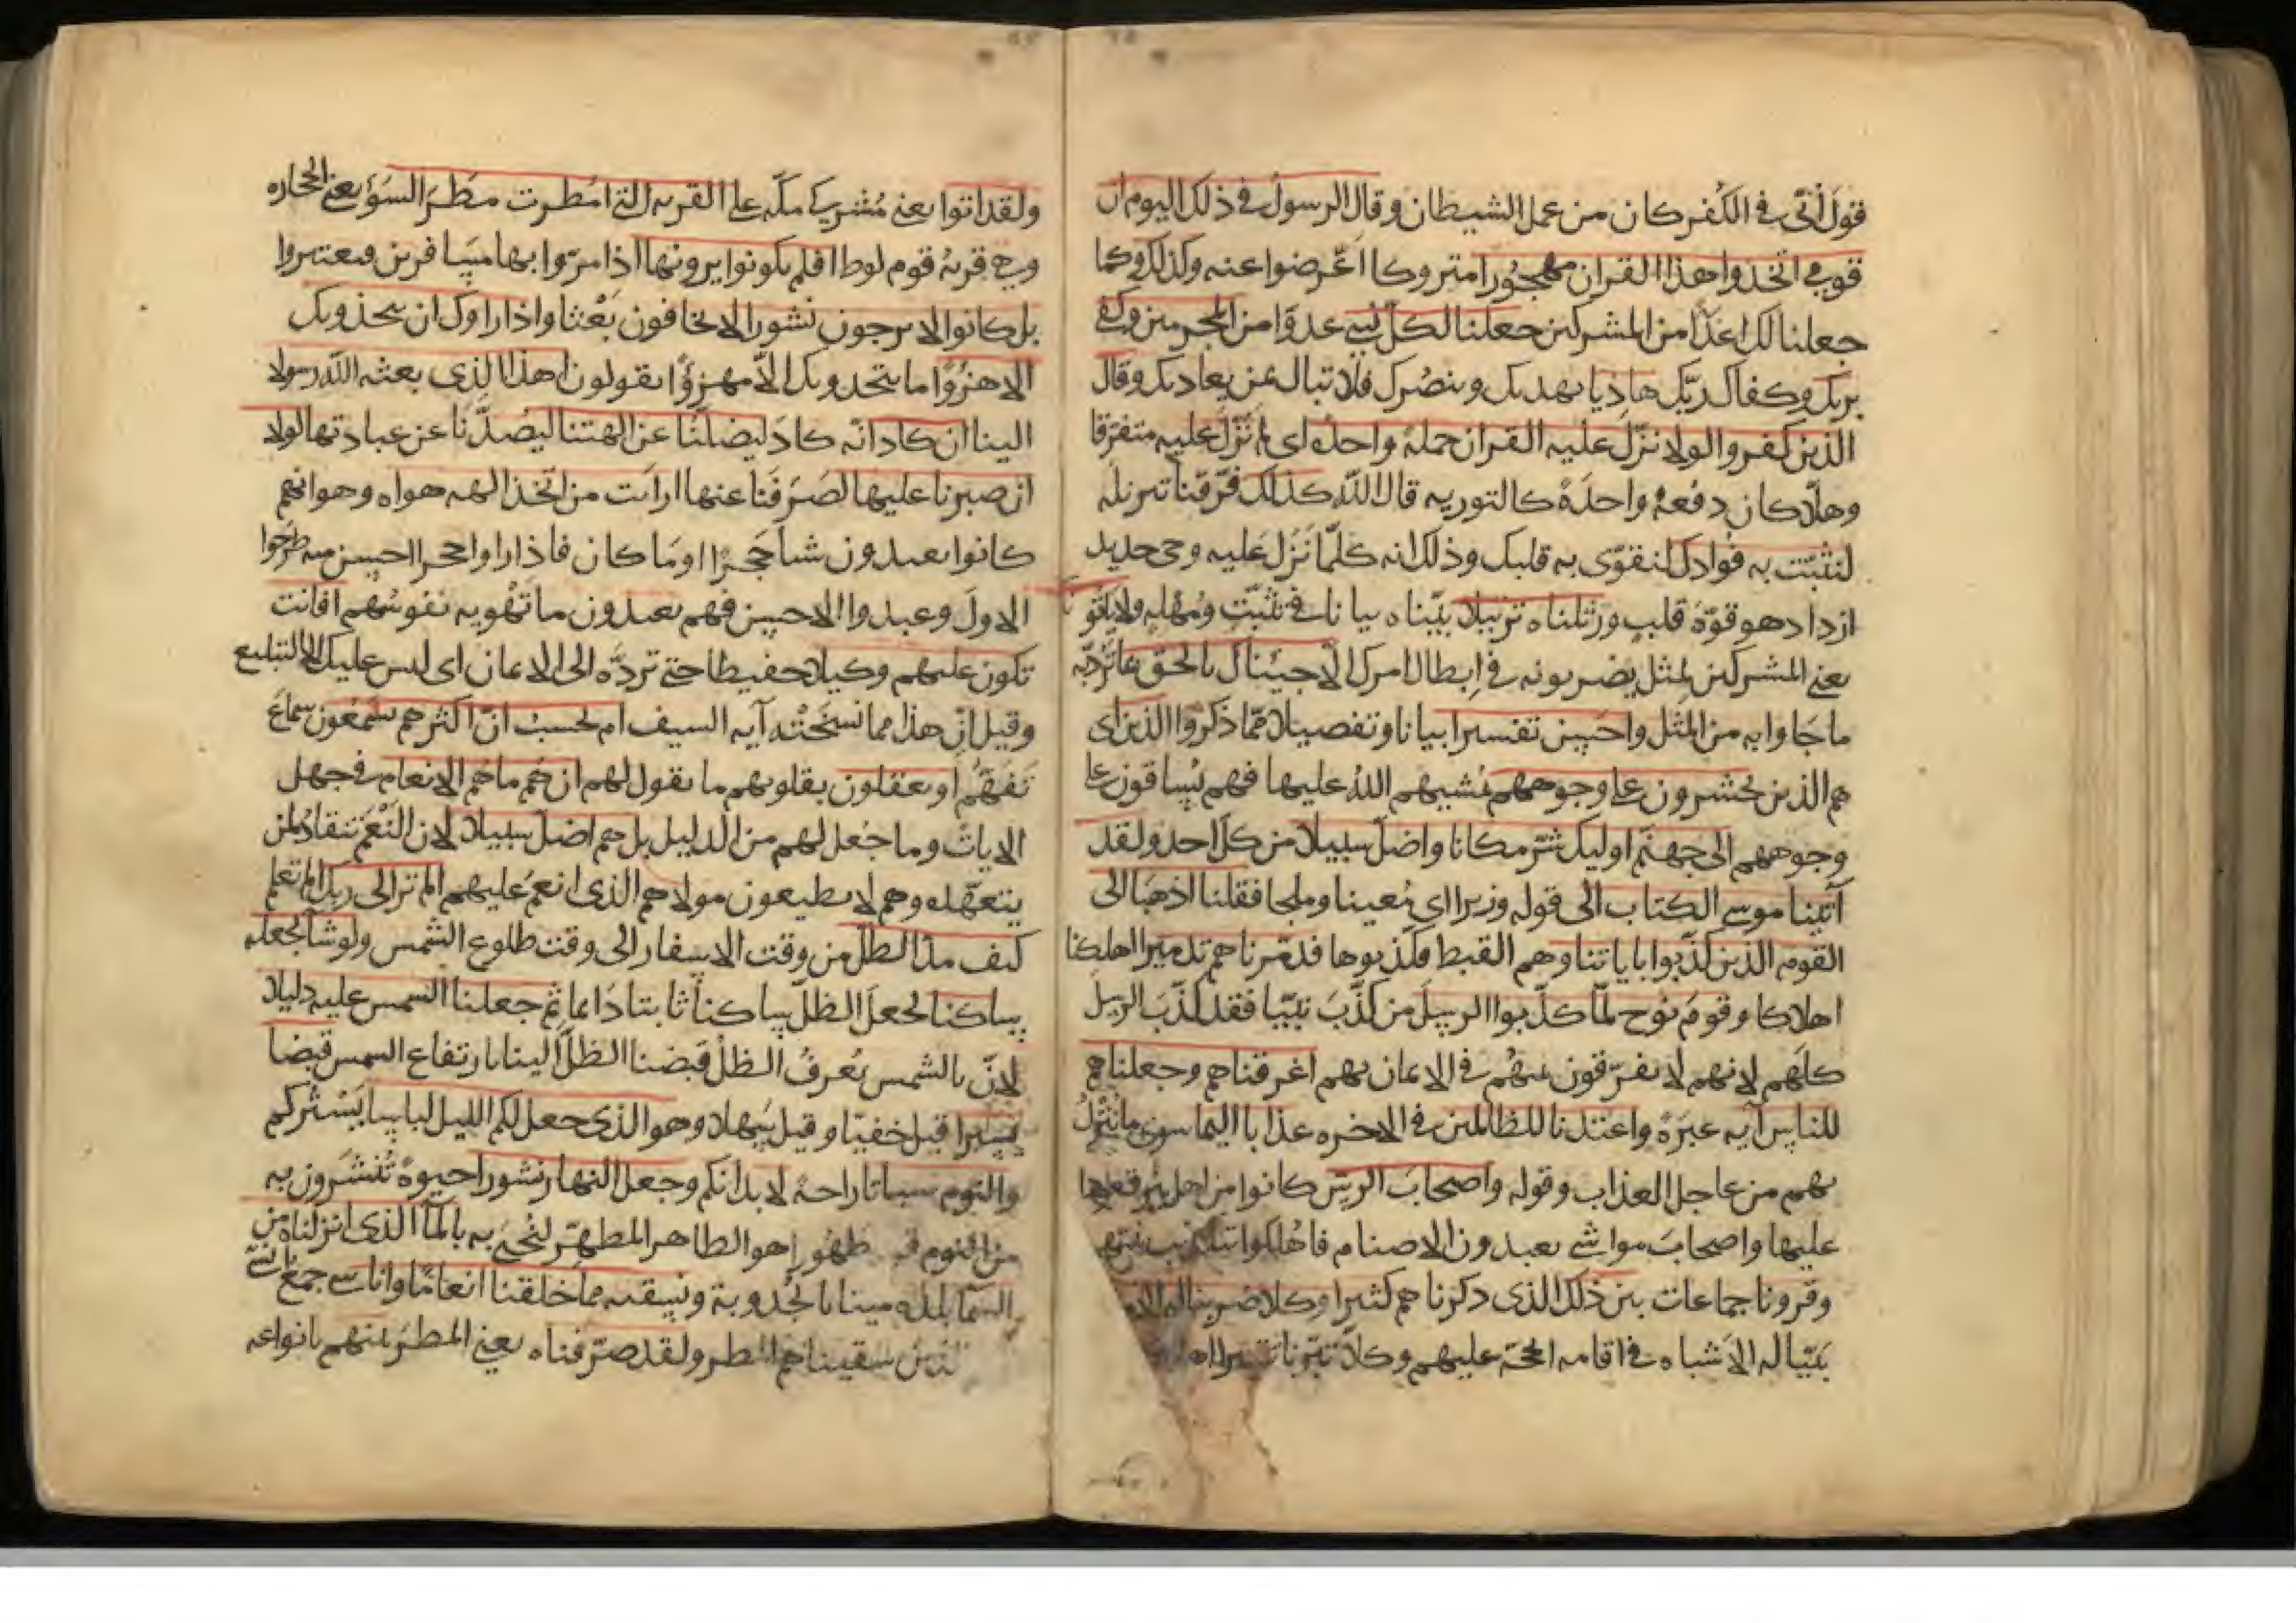 قول أبي في الكفر كان من عمل الشيطان وقال الرسول في ذلك اليوم ان
قومي اتخذوا هذا القران مهجورا متروكا اعرضوا عنه وكذلك وكما
جعلنا لك اعدا من المشركين جعلنا لكل نبي عدوا من المجرمين وكفى
بربك وكفاك ربك هاديا يهديك وينصرك فلا تبال من يعاديك وقال
الذين كفروا لولا نزل عليه القران جملة واحدة اي لم نزل عليه متفرقا
وهلا كان دفعة واحدة كالتوريه قال الله كذلك فرقنا تنزيله
لنثبت به فوادك لنقوي به قلبك وذلك انه كلما نزل عليه وحي جديد
ازداد هو قوة قلب ورتلناه ترتيلا بيناه بيانا في تثبت ومهلة ولا ياتونك
يعني المشركين بمثل يضربونه في ابطال امرك الا جيناك بالحق بما تردبه
ما جاوا به من المثل واحسن تفسيرا بيانا وتفصيلا مما ذكروا الذين اي
هم الذين يحشرون على وجوههم يمشيهم الله عليها فهم يساقون على
وجوههم الى جهنم اوليك شر مكانا واضل سبيلا من كل احد ولقد
آتينا موسى الكتاب الى قوله وزيرا اي معينا وملجا فقلنا اذهبا الى
القوم الذين كذبوا باياتنا وهم القبط فكذبوهما فدمرناهم تدميرا اهلكنا
اهلاكا وقوم نوح لما كذبوا الرسل من كذب نبيا فقد كذب الرسل
كلهم لانهم لا يفرقون بينهم في الايمان بهم اغرقناهم وجعلناهم
للناس آيه عبرة واعتدنا للظالمين في الاخره عذابا اليما سوى ما ينزل
بهم من عاجل العذاب وقوله واصحاب الرس كانوا من اهل بئر قعود
عليها واصحاب مواشي يعبدون الاصنام فاهلكوا بتكذيب نبيهم
وقرونا جماعات بين ذلك الذي ذكرناهم كثيرا وكلا ضربنا له الامثال
بينا له الاشباه في اقامه الحجة عليهم وكلا تبرنا تتبيرا
ولقد اتوا يعني مشركي مكه على القريه التي امطرت مطر السوء يعني الحجاره
وهي قرية قوم لوط افلم يكونوا يرونها اذا مروا بها مسافرين فيعتبروا
بل كانوا لا يرجون نشورا لا يخافون بعثا واذا راوك ان يتخذونك
الا هزوا ما يتخذونك الا مهزوا يقولون اهذا الذي بعثه الله رسولا
الينا ان كاد انه كاد ليضلنا عن الهتنا ليصدنا عن عبادتها لولا
ان صبرنا عليها لصرفنا عنها ارايت من اتخذ الهه هواه وهو انهم
كانوا يعبدون شيا حجرا او ما كان فاذا راوا حجرا احسن منه طرحوا
الاول وعبدوا الاحسن فهم يعبدون ما تهويه نفوسهم افانت
تكون عليهم وكيلا حفيظا حتى ترده الى الايمان اي ليس عليك الا التبليغ
وقيل ان هذا مما نسخته آيه السيف ام تحسب ان اكثرهم يسمعون سماع
تفهم او يعقلون بقلوبهم ما يقول لهم ان هم ما هم الا كالانعام في جهل
الايات وما جعل لهم من الدليل بل هم اضل سبيلا لان النعم تنقاد لمن
يتعهده وهم لا يطيعون مولاهم الذي انعم عليهم الم تر الى ربك الم تعلم
كيف مد الظل من وقت الاسفار الى وقت طلوع الشمس ولو شا لجعله
ساكنا لجعل الظل ساكنا ثابتا دائما ثم جعلنا الشمس عليه دليلا
لان بالشمس يعرف الظل قبضنا الظل الينا بارتفاع الشمس قبضا
يسيرا قيل خفيا وقيل سهلا وهو الذي جعل لكم الليل لباسا يستركم
والنوم سباتا راحة لابدانكم وجعل النهار نشورا حيوة تنشرون به
من النوم طهورا هو الطاهر المطهر لنحيي به بالماء الذي انزلناه من
السما بلدة ميتا بالجدوبة ونسقيه مما خلقنا انعاما واناسي جمع انسي
سقيناهم المطر ولقد صرفناه يعني المطر بينهم بانواعه